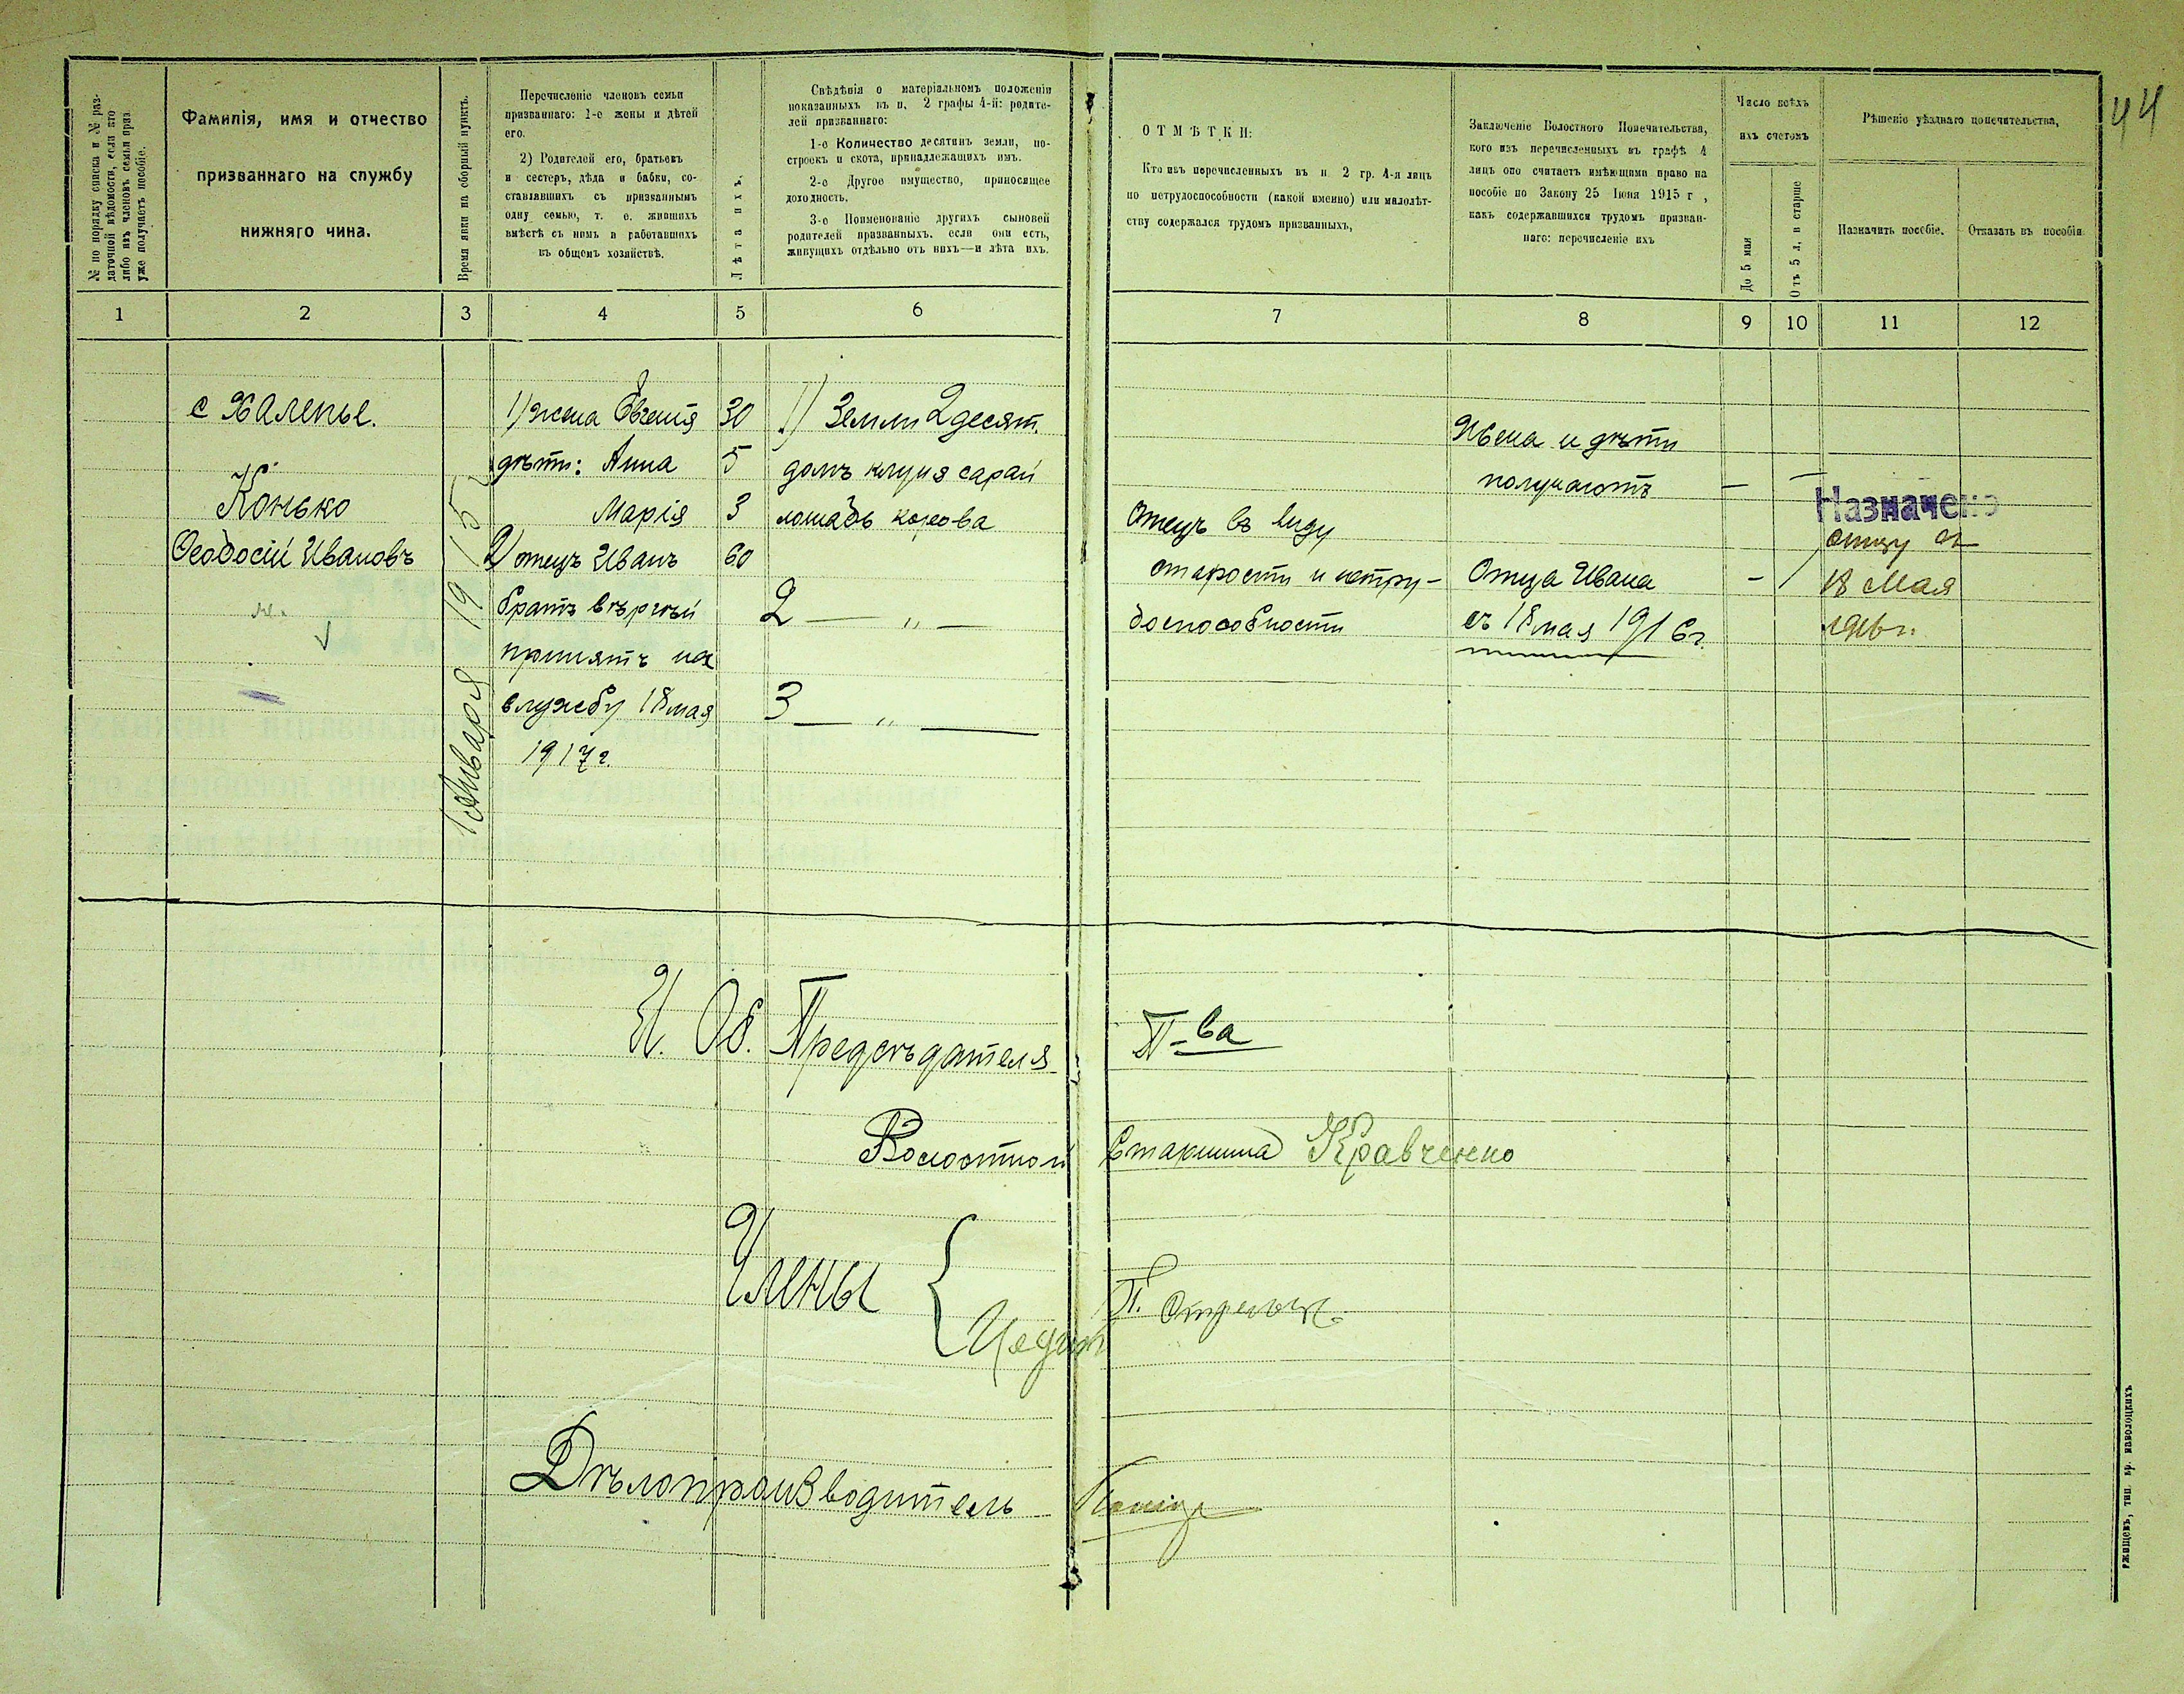 44
№ по порядку списка и № раз-
даточной вѣдомости, если кто
либо изъ членовъ семьи приз.
уже получаетъ пособіе.
Фамилія, имя и отчество
призваннаго на службу
нижняго чина.
Время явки на сборный пунктъ.
Перечисленіе членовъ семьи
призваннаго: 1-е жены и дѣтей
его.
2) Родителей его, братьевъ
и сестеръ, дѣда и бабки, со-
ставлявшихъ съ призваннымъ
одну семью, т. е. жившихъ
вмѣстѣ съ нимъ и работавшихъ
въ общемъ хозяйствѣ.
Лѣта ихъ.
Свѣдѣнія о матеріальномъ положеніи
показанныхъ въ п. 2 графы 4-й: родите-
лей призваннаго:
1-е Количество десятинъ земли, по-
строекъ и скота, принадлежащихъ имъ.
2-е Другое имущество, приносящее
доходность.
3-е Поименованіе другихъ сыновей
родителей призванныхъ, если они есть,
живущихъ отдѣльно отъ нихъ—и лѣта ихъ.
ОТМѢТКИ:
Кто изъ перечисленныхъ въ п. 2 гр. 4-я лицъ
по нетрудоспособности (какой именно) или малолѣт-
ству содержался трудомъ призванныхъ,
Заключеніе Волостного Попечительства,
кого изъ перечисленныхъ въ графѣ 4
лицъ оно считаетъ имѣющими право на
пособіе по Закону 25 Іюня 1915 г ,
какъ содержавшихся трудомъ призван-
наго: перечисленіе ихъ
Число всѣхъ
ихъ счетомъ
До 5 мая
Отъ 5 л. и старше
Рѣшеніе уѣзднаго попечительства,
Назначить пособіе.
Отказать въ пособіи
1 2 3 4 5 6 7 8 9 10 11 12
с Халепье.
Конько
Феодосій Ивановъ
1 Января 1915
1) жена Евгенія 30
дѣти: Анна 5
Марія 3
2) отецъ Иванъ 60
братъ
принятъ на
службу 18 мая
1917 г.
1) Земли 2 десят.
домъ клуня сарай
лошадь корова
2 — „ —
3 — „ —
Отецъ въ виду
старости и нетру-
доспособности
Жена и дѣти
получаютъ — —
Отца Ивана — 1
съ 18 мая 1916 г.
Назначено
отцу съ
18 Мая
1916 г.
И. Об. Предсѣдателя П-ва
Волостной Старшина Кравченко
Члены {
П.
Дѣлопроизводитель
ржищевъ, тип. бр. наволоцкихъ